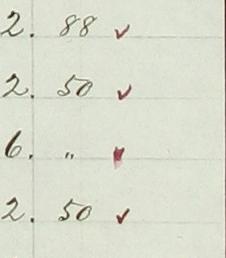 2. 88 ✓
2. 50 ✓
6. " ✓
2. 50 ✓